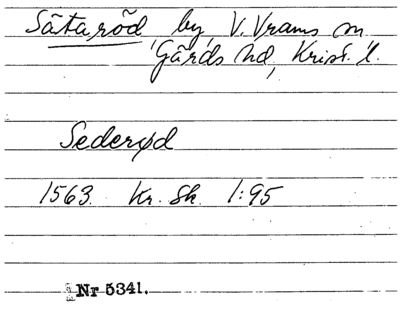 Sätaröd by, V. Vrams sn
Gärds hd, Krist. l.
Sederød
1563. Kr. Sk. 1:95
Nr 5341.